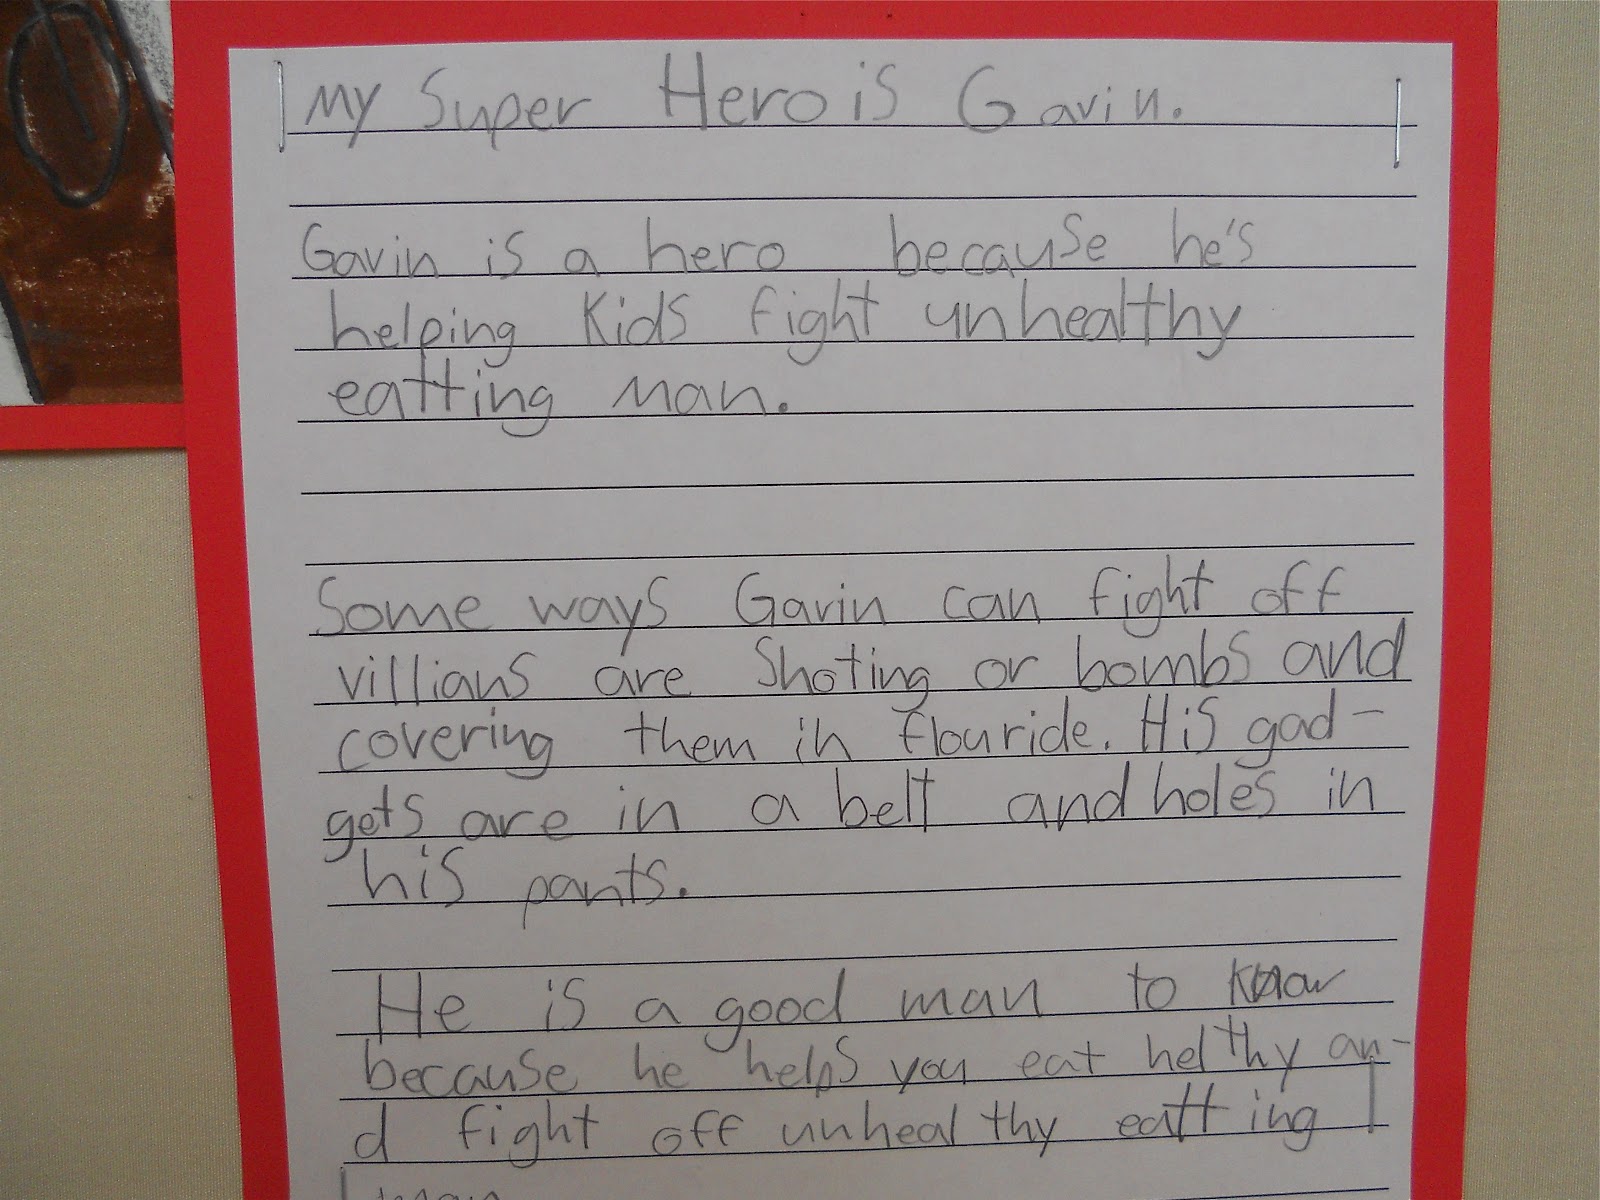 My Super Hero is Gavin.
Gavin is a hero because he's
helping Kids fight unhealthy
eatting man.
Some ways Gavin can fight off
villians are Shoting or bombs and
covering them in flouride. His gad-
gets are in a belt and holes in
his pants.
He is a good man to know
because he helps you eat helthy an-
d fight off unhealthy eatting
man